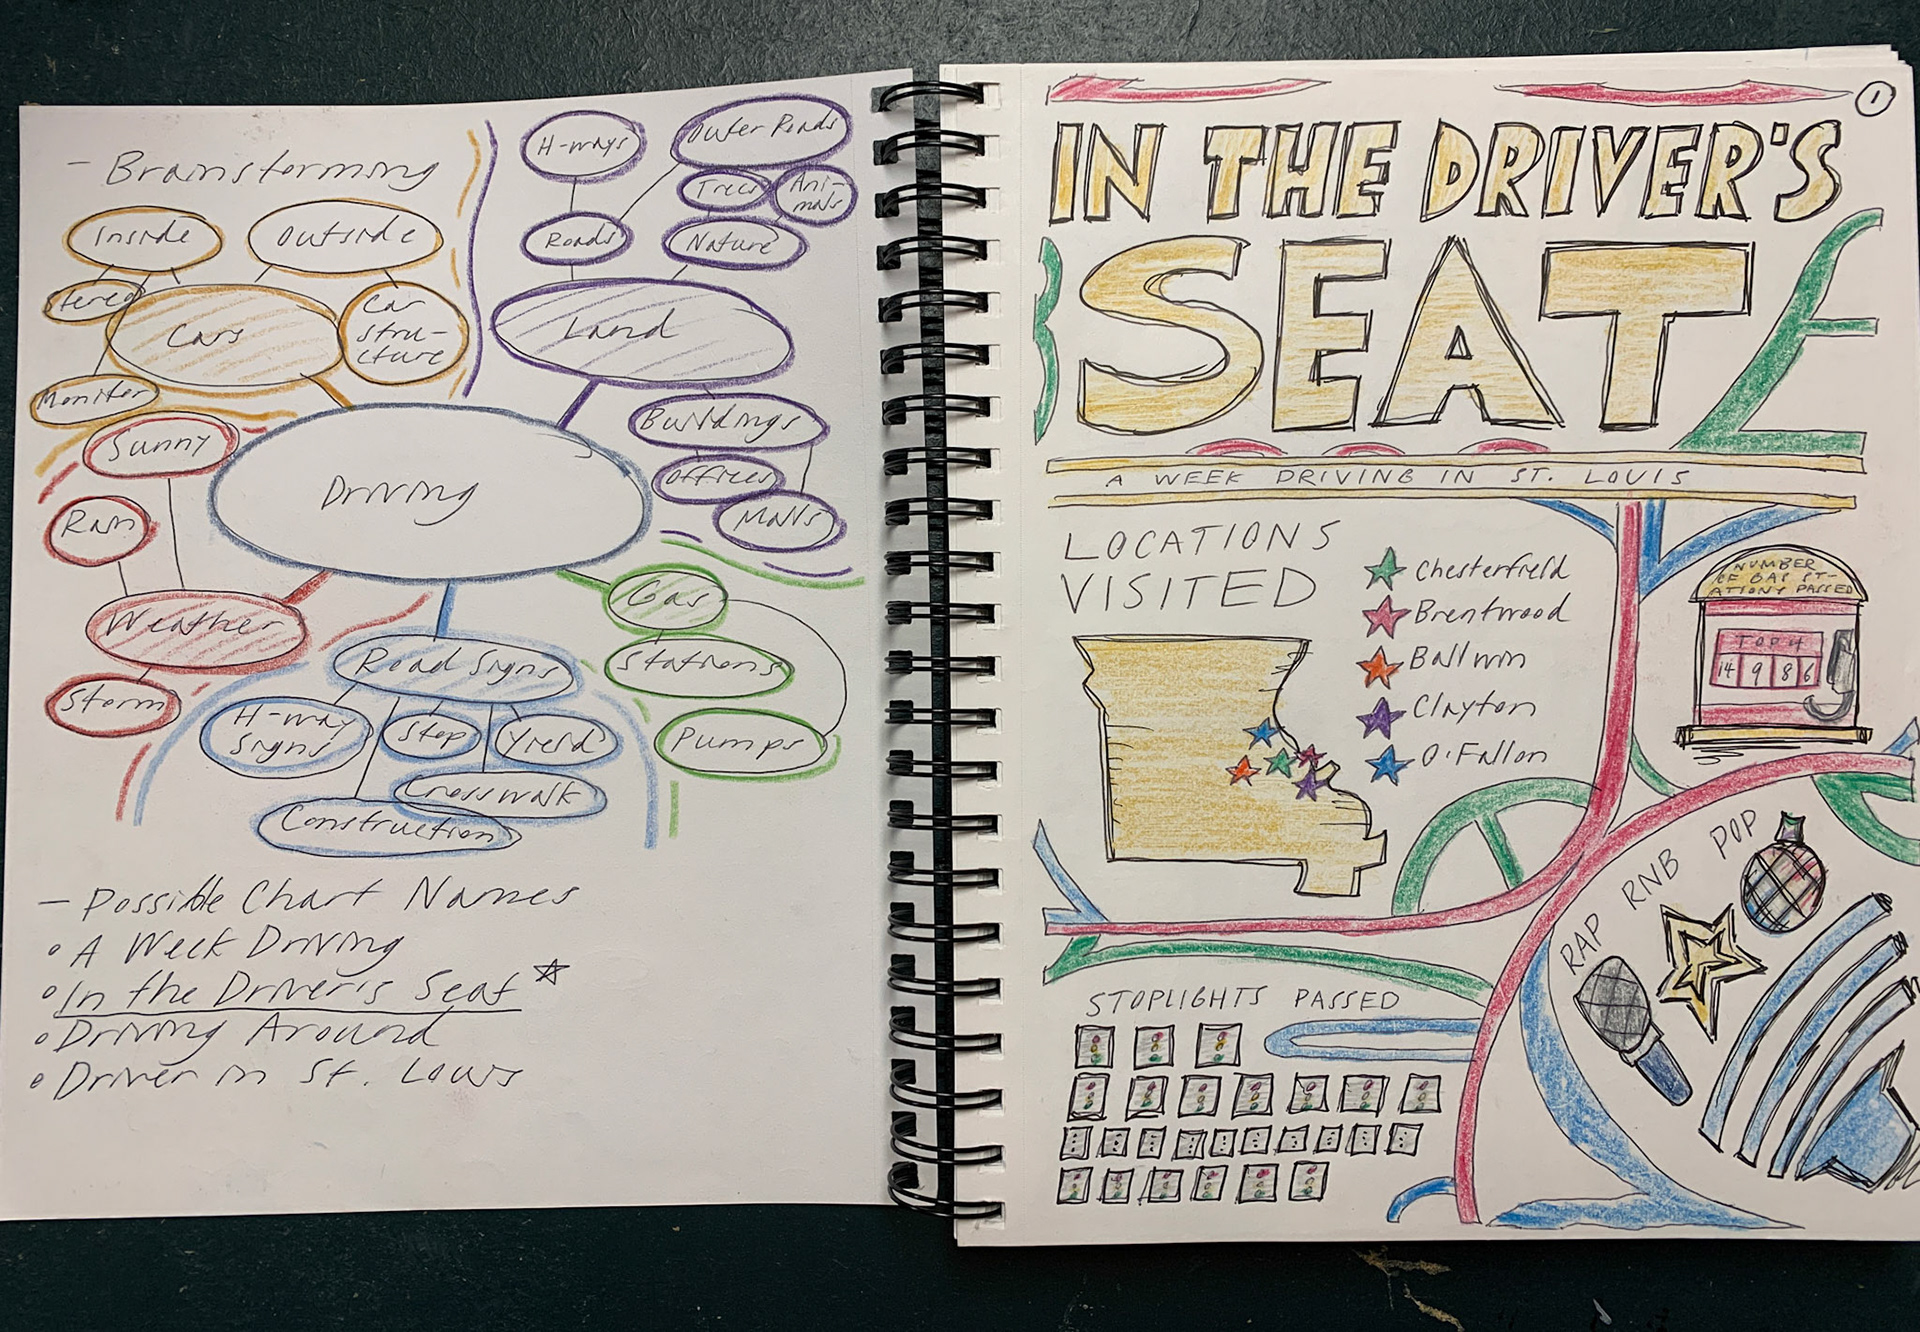 - Brainstorming
Inside
Outside
Stereo
Cars
Car
stru-
cture
Moniter
H-ways
Outer Roads
Trees
Ani-
mals
Roads
Nature
Land
Buildings
Offices
Malls
Driving
Sunny
Rain
Weather
Storm
Road Signs
H-way
Signs
Stop
Yield
Crosswalk
Construction
Gas
Stations
Pumps
- Possible Chart Names
• A Week Driving
• In the Driver's Seat ☆
• Driving Around
• Driver in St. Louis
1
IN THE DRIVER'S
SEAT
A WEEK DRIVING IN ST. LOUIS
LOCATIONS
VISITED
Chesterfield
Brentwood
Ballwin
Clayton
O'Fallon
NUMBER
OF GAS ST-
ATIONS PASSED
TOP 4
14 9 8 6
RAP RNB POP
STOPLIGHTS PASSED